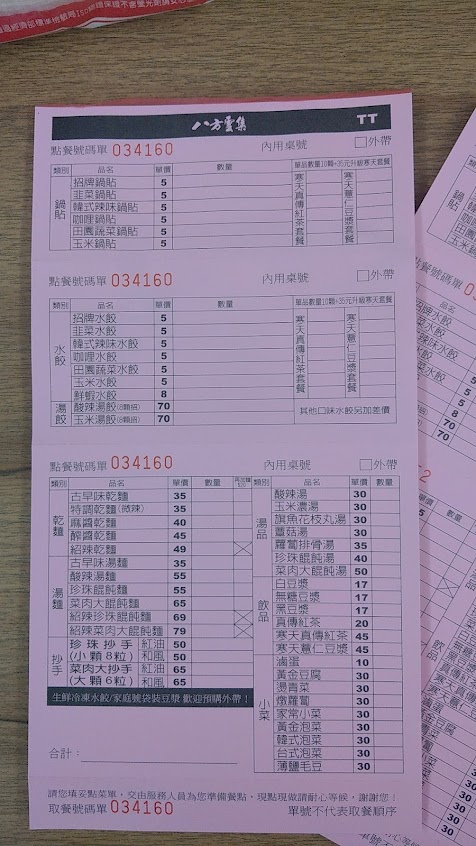 八方雲集 TT
點餐號碼單 034160 內用桌號 □外帶
類別 品名 單價 數量 單品數量10顆+35元升級寒天套餐
鍋貼
招牌鍋貼 5
韭菜鍋貼 5
韓式辣味鍋貼 5
咖哩鍋貼 5
田園蔬菜鍋貼 5
玉米鍋貼 5
寒天真傳紅茶套餐
寒天薏仁豆漿套餐
點餐號碼單 034160 內用桌號 □外帶
類別 品名 單價 數量 單品數量10顆+35元升級寒天套餐
水餃
招牌水餃 5
韭菜水餃 5
韓式辣味水餃 5
咖哩水餃 5
田園蔬菜水餃 5
玉米水餃 5
鮮蝦水餃 8
湯餃
酸辣湯餃(8顆招) 70
玉米湯餃(8顆招) 70
寒天真傳紅茶套餐
寒天薏仁豆漿套餐
其他口味水餃另加差價
點餐號碼單 034160 內用桌號 □外帶
類別 品名 單價 數量
乾麵
古早味乾麵 35
特調乾麵(微辣) 35
麻醬乾麵 40
醡醬乾麵 45
紹辣乾麵 49
湯麵
古早味湯麵 35
酸辣湯麵 55
珍珠餛飩麵 55
菜肉大餛飩麵 65
紹辣珍珠餛飩麵 69
紹辣菜肉大餛飩麵 79
抄手
珍珠抄手(小顆8粒) 紅油 50
和風 50
菜肉大抄手(大顆6粒) 紅油 65
和風 65
生鮮冷凍水餃/家庭號袋裝豆漿 歡迎預購外帶！
合計：
類別 品名 單價 數量
湯品
酸辣湯 30
玉米濃湯 30
旗魚花枝丸湯 30
蕈菇湯 30
蘿蔔排骨湯 35
珍珠餛飩湯 40
菜肉大餛飩湯 50
飲品
白豆漿 17
無糖豆漿 17
黑豆漿 17
真傳紅茶 20
寒天真傳紅茶 45
寒天薏仁豆漿 45
小菜
滷蛋 10
黃金豆腐 30
燙青菜 30
燉蘿蔔 30
家常小菜 30
黃金泡菜 30
韓式泡菜 30
台式泡菜 30
薄鹽毛豆 30
請您填妥點菜單，交由服務人員為您準備餐點，現點現做請耐心等候，謝謝您！
取餐號碼單 034160 單號不代表取餐順序